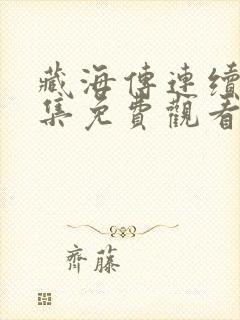 藏海傳連續
集免費觀看
齊藤